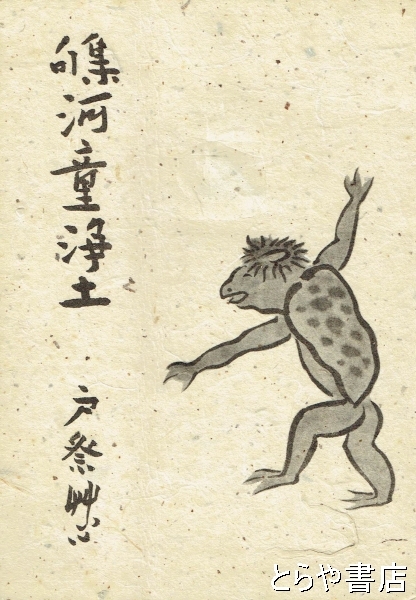 句集
河童浄土
戸祭艸心
とらや書店